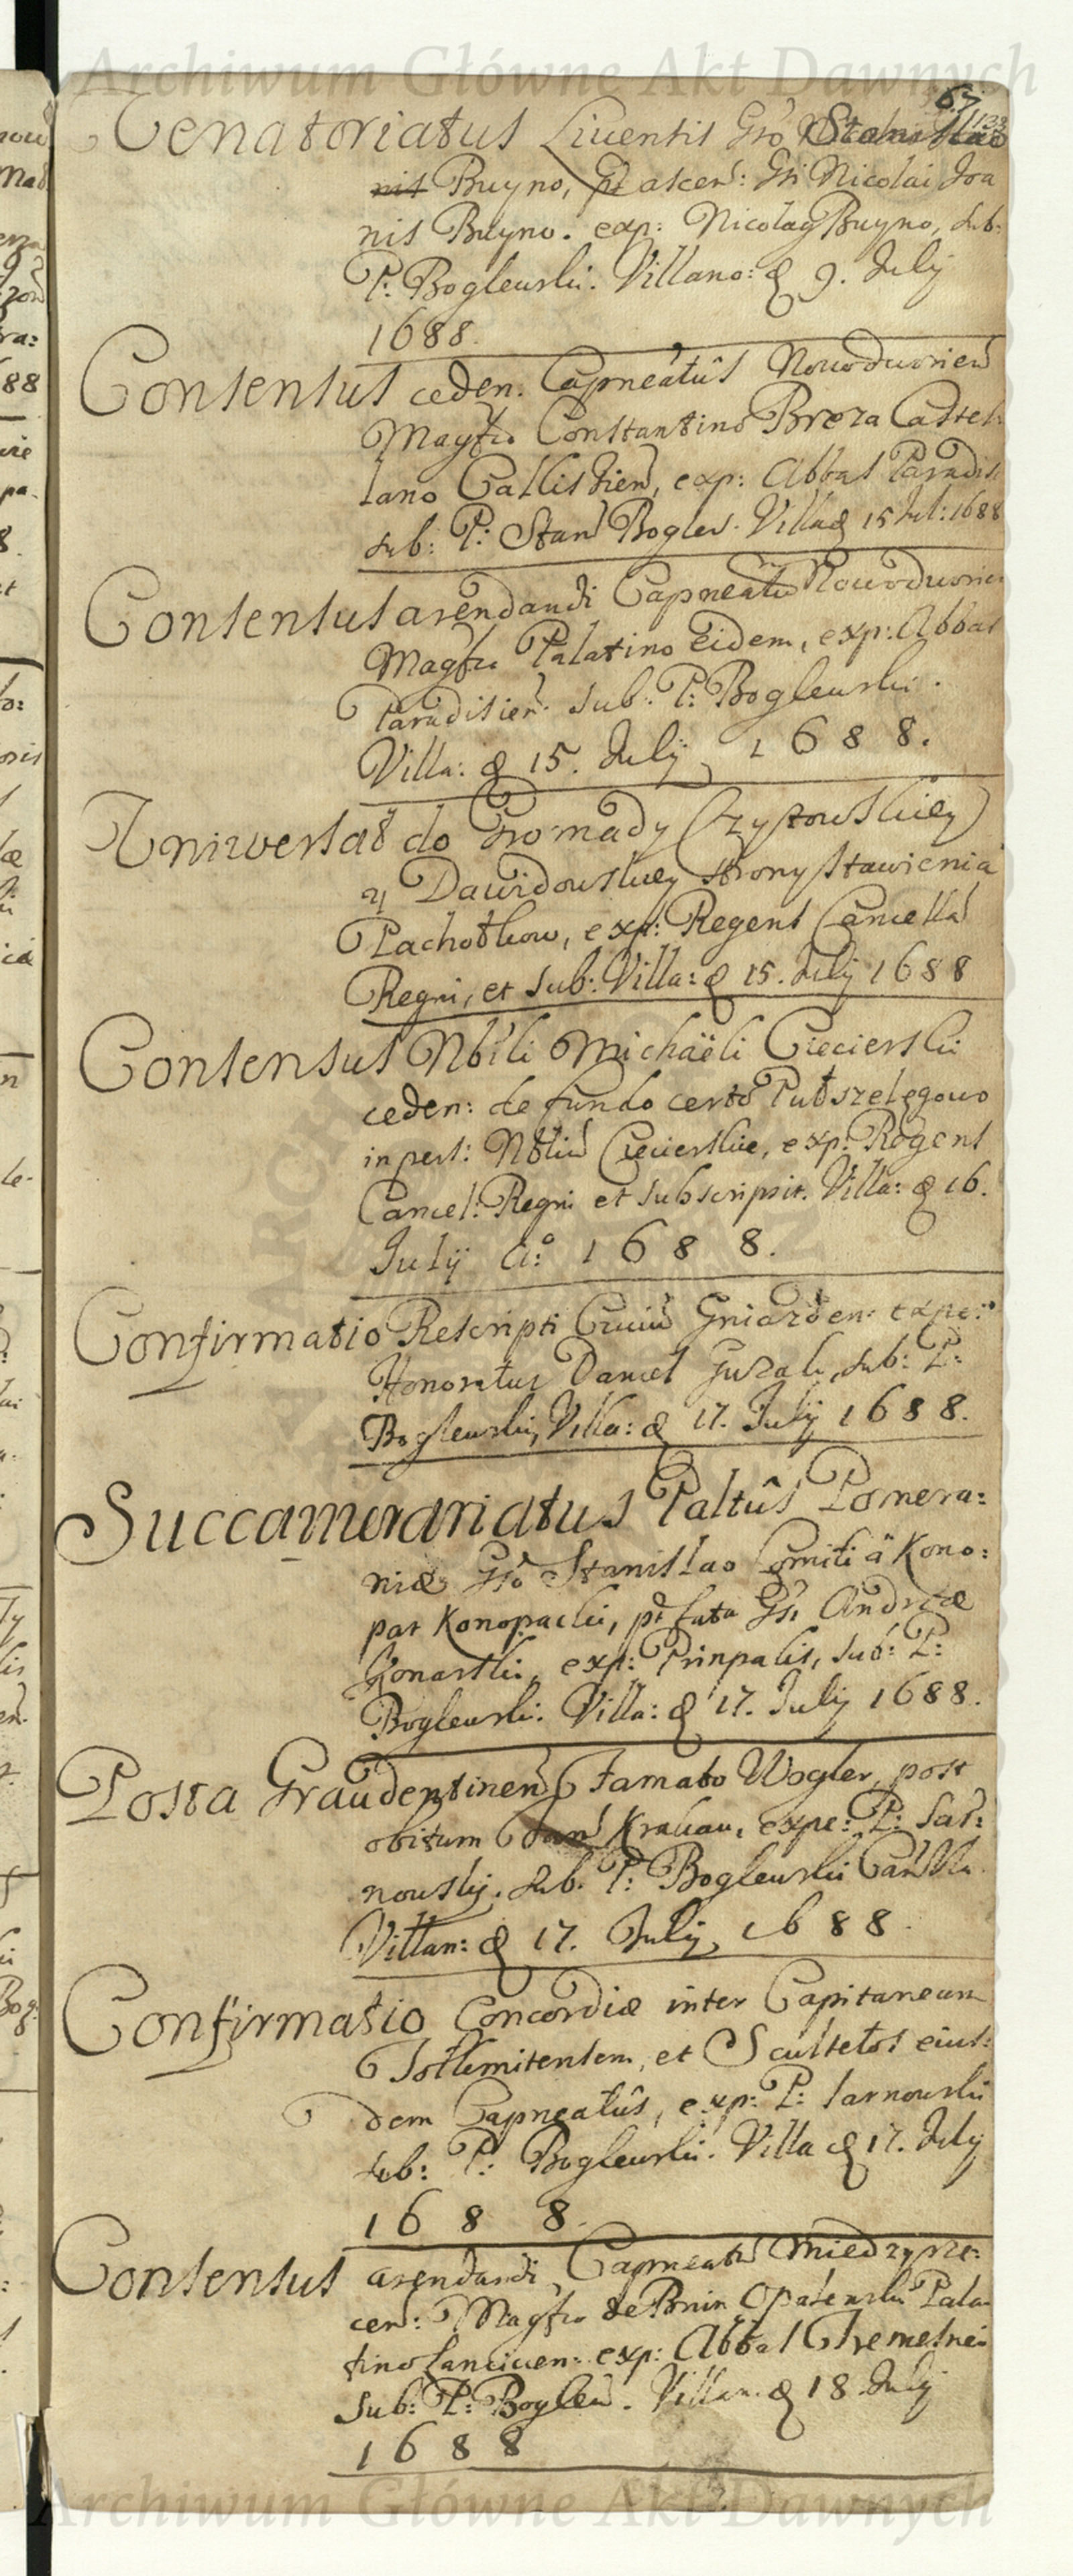 Archiwum Główne Akt Dawnych
67
Venatoriatus Liventis Gso Stanislao
nis Buyno, pt ascen: Gsi Nicolai Joa
nis Buyno. exp: Nicolaq Buyno, sub:
P: Boglewski. Villano: d 9. July
1688.
Consensus ceden: Capneatûs Nowodworien
Magfco Constantino Breza Castel:
lano Callisdien, exp: Abbas Paradis
sub: P: Stan Bogles. Villa d 15 Jul: 1688
Consensus arendandi Capneatu Nowodworien
Magfco Palatino Eidem, exp: Abbas
Paradisien. sub: P: Boglewski.
Villa: d 15. July 1688.
Uniwersał do Gromady Czyzowskiey
y Dawidowskiey strony stawienia
Pachołkow, exp: Regens Cancella
Regni, et sub: Villa: d 15. July 1688
Consensus Nbili Michaëli Ciecierski
ceden: de fundo certo Putszelęgowo
in pers: Nbliu Ciecierskie, exp: Regens
Cancel: Regni et subscripsit. Villa: d 16.
July Ao: 1688.
Confirmatio Rescripti Gniazden: expe:
Honoratus Daniel Guzak, sub: P:
Boglewski, Villa: d 17. July 1688.
Succamerariatus Paltûs Pomera:
niæ Gso Stanislao Comiti à Kono:
pat Konopacki, pt fata Gsi Andreæ
Konarski, exp: Prinpalis, sub: P:
Boglewski. Villa: d 17. July 1688.
Posta Graudentinen Famato Wogler, post
obitum Krakau, expe: P: Sar:
nowsky. sub. P: Boglewski
Villan: d 17. July, 1688.
Confirmatio Concordiæ inter Capitaneum
Tolkemitensem, et Scultetos eius:
dem Capneatûs, exp: P: Sarnowski
sub: P: Boglewski. Villa d 17. July
1688.
Consensus arendandi Capneatu Miedzyrze:
cen: Magfco de Bnin Opalenski Pala
tino Lancicien: exp: Abbas Tremesnen
sub: P: Boglew. Villan. d 18 July
1688
Archiwum Główne Akt Dawnych